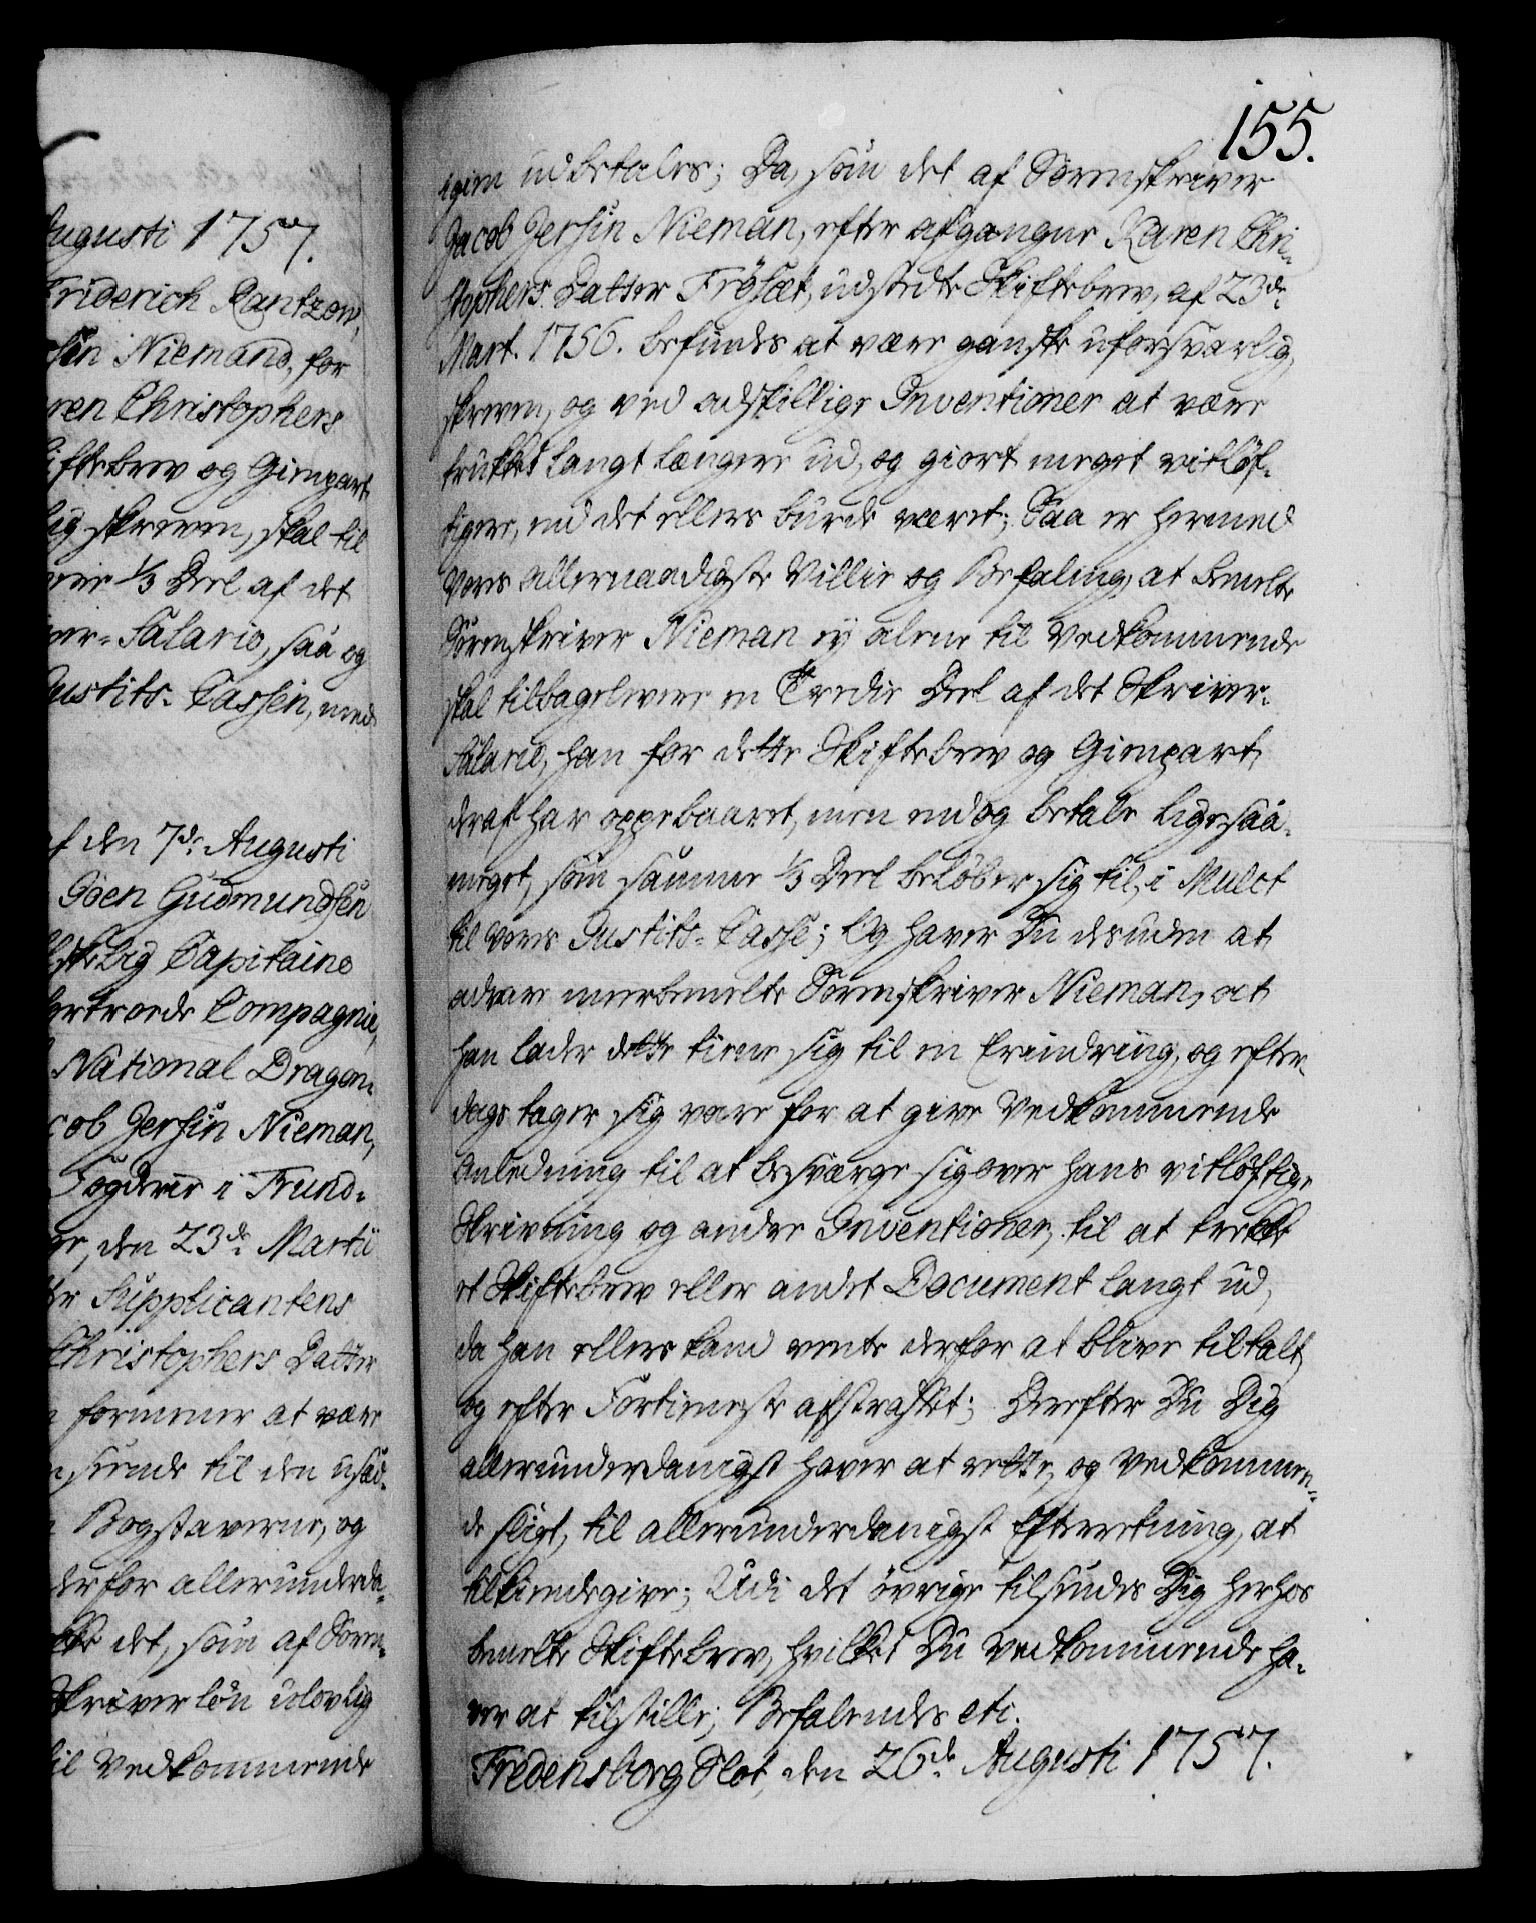 ugusti 1757.
Friderich Rantzow,
sin Niemand, for
ren Christophers
iftebrev og Gienpart
lig skreven, skal til
⅓ Deel af det
ver-Salario, saa og
Justits-Cassen, med
af den 7de Augusti
Joen Gudmundsen
Capitaine
Compagnie,
National Dragon-
cob Jersin Nieman,
Fogderie i Trund-
ge, den 23de Martii
Supplicantens
Christophers Datter
formener at være
seende til den usæd-
Bogstaverne, og
derfor allerunderda-
det, som af Soren-
Skriverløn ulovlig
til Vedkommende
155.
igien udbetales; Da, som det af Sorenskriver
Jacob Jersin Nieman, efter afgangne Karen Chri-
stophers Datter Frøset, udstedte Skiftebrev, af 23de
Mart. 1756. befindes at være ganske uforsvarlig
skreven, og ved adskillige Inventioner at være
trukket langt længere ud, og giort meget vitløf-
tigere, end det ellers burde været; Saa er hermed
Vores allernaadigste Villie og Befaling, at bemelte
Sorenskriver Nieman ey alene til Vedkommende
skal tilbagelevere en Tredie Deel af det Skriver-
Salario, han for dette Skiftebrev og Gienpart
deraf har oppebaaret, men endog betale ligesaa-
meget, som samme ⅓ Deel beløber sig til, i Mulct
til Vores Justits-Casse; Og haver Du desuden at
advare meerbemelte Sorenskriver Nieman, at
han lader dette tiene sig til en Erindring, og efter-
dags tager sig vare for at give Vedkommende
Anledning til at besværge sig over hans vitløftige
Skrivning og andre Inventioner, til at trekke
et Skiftebrev eller andet Document langt ud,
da han ellers kand vente derfor at blive tiltalt,
og efter Fortieneste afstraffet; Derefter Du Dig
allerunderdanigst haver at rette, og Vedkommen-
de sligt, til allerunderdanigst Efterretning, at
tilkiendegive; Udi det øvrige tilsendes Dig herhos
bemelte Skiftebrev, hvilket Du Vedkommende ha-
ver at tilstille; Befalendes etc.
Fredensborg Slot, den 26de Augusti 1757.